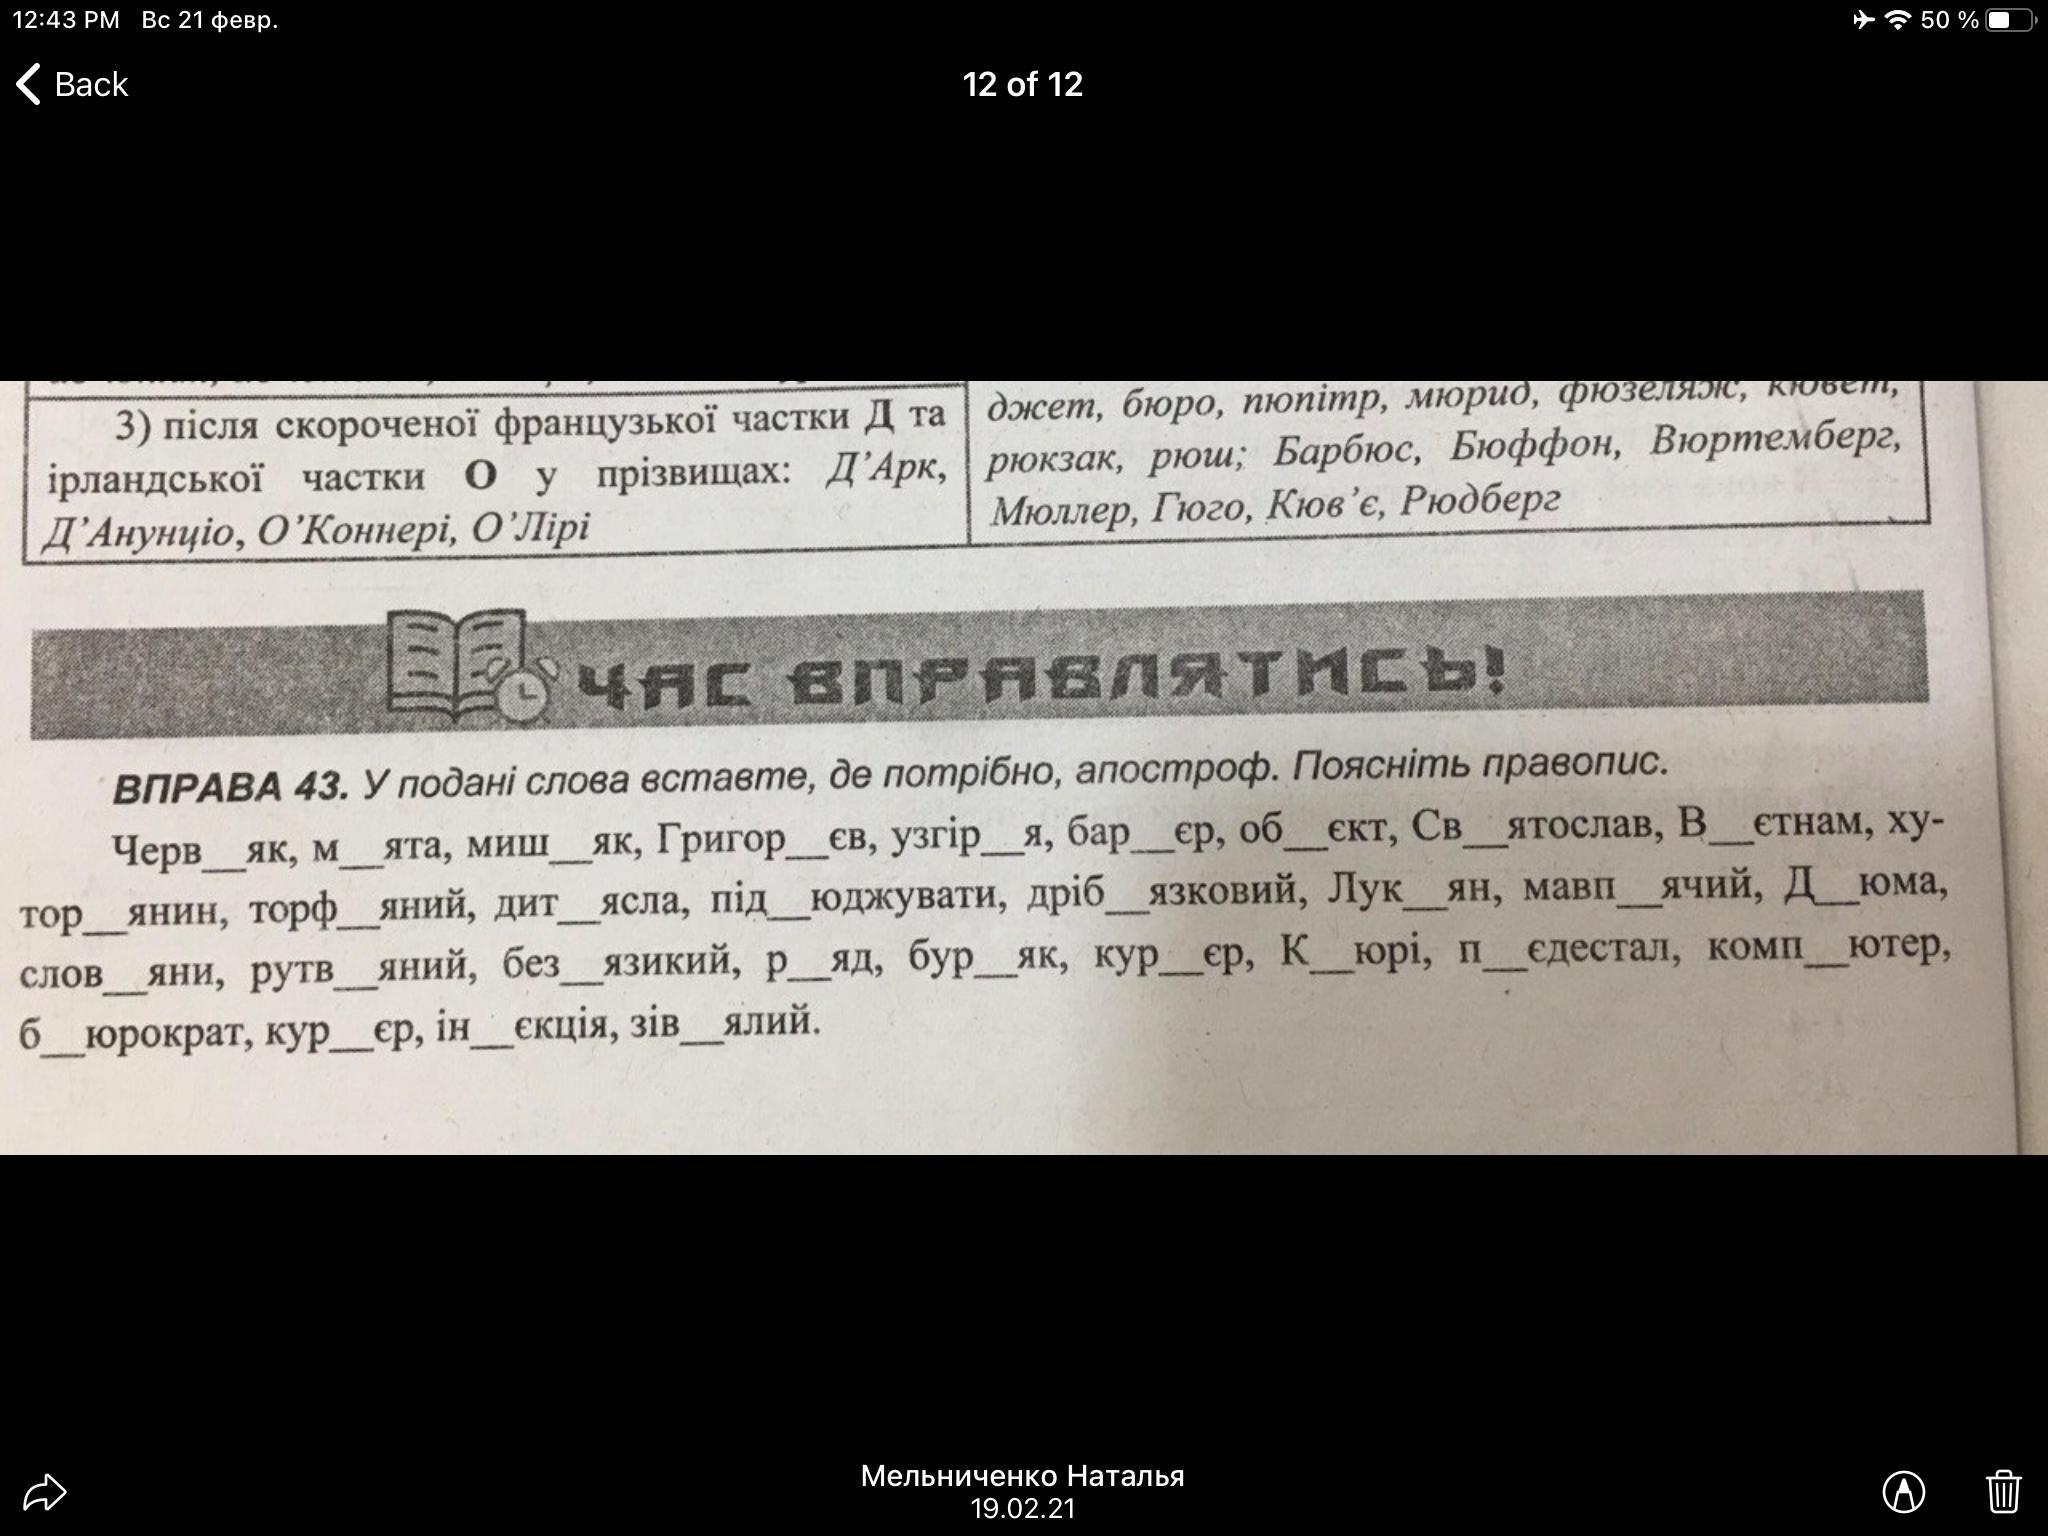 12:43 PM Вс 21 февр.
50 %
Back
12 of 12
3) після скороченої французької частки Д та
ірландської частки О у прізвищах: Д’Арк,
Д’Анунціо, О’Коннері, О’Лірі
джет, бюро, пюпітр, мюрид, фюзеляж, кювет,
рюкзак, рюш; Барбюс, Бюффон, Вюртемберг,
Мюллер, Гюго, Кюв’є, Рюдберг
ЧАС ВПРАВЛЯТИСЬ!
ВПРАВА 43. У подані слова вставте, де потрібно, апостроф. Поясніть правопис.
Черв__як, м__ята, миш__як, Григор__єв, узгір__я, бар__єр, об__єкт, Св__ятослав, В__єтнам, ху-
тор__янин, торф__яний, дит__ясла, під__юджувати, дріб__язковий, Лук__ян, мавп__ячий, Д__юма,
слов__яни, рутв__яний, без__язикий, р__яд, бур__як, кур__єр, К__юрі, п__єдестал, комп__ютер,
б__юрократ, кур__єр, ін__єкція, зів__ялий.
Мельниченко Наталья
19.02.21